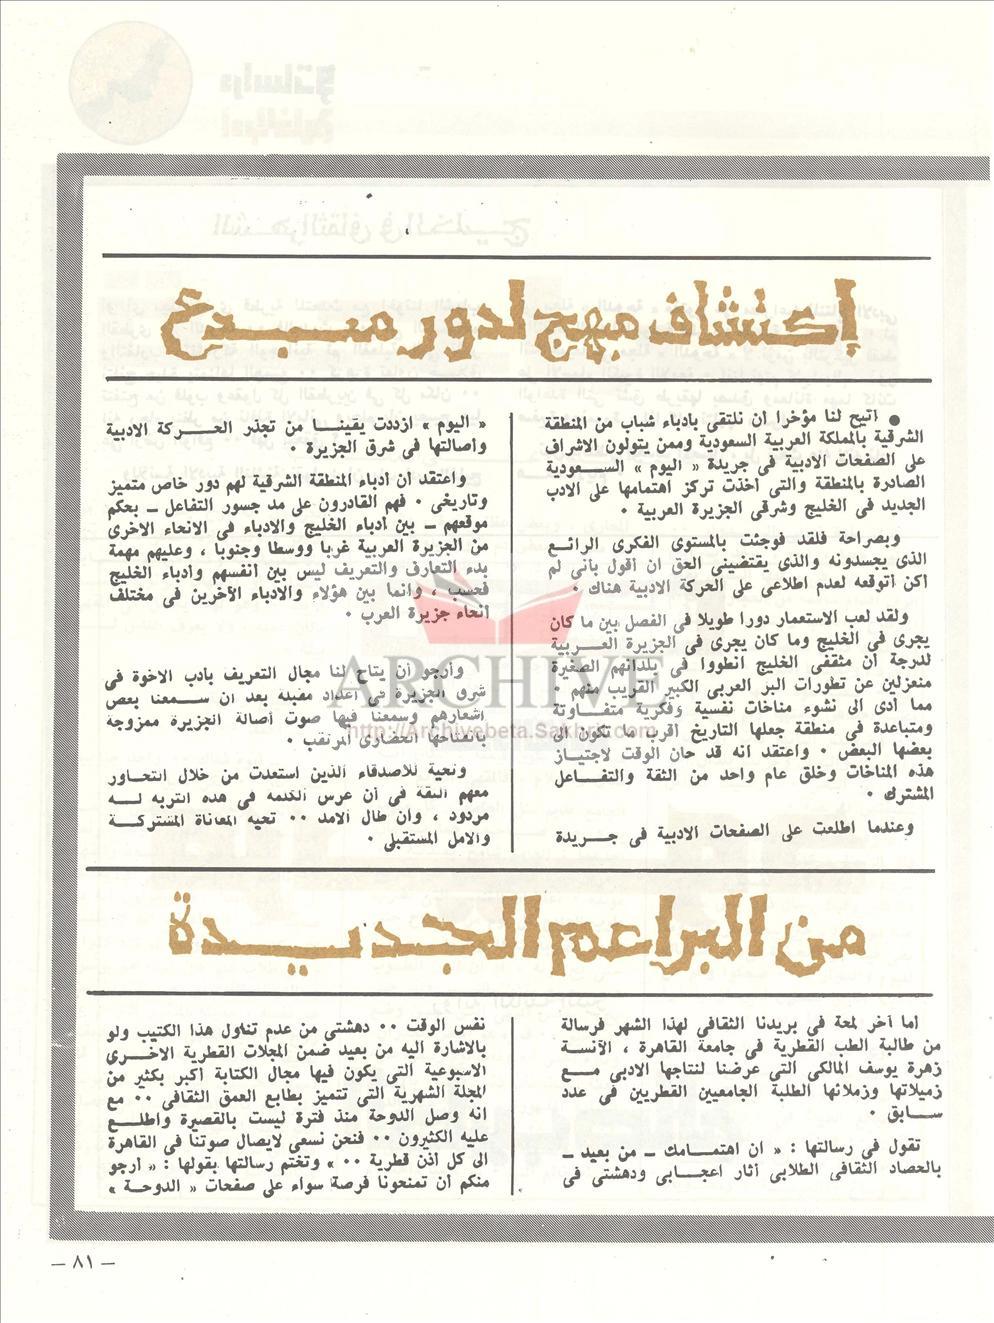 إكتشاف مبهج لدور مبدع
● اتيح لنا مؤخرا ان نلتقى بادباء شباب من المنطقة
الشرقية بالمملكة العربية السعودية وممن يتولون الاشراف
على الصفحات الادبية في جريدة « اليوم » السعودية
الصادرة بالمنطقة والتى اخذت تركز اهتمامها على الادب
الجديد فى الخليج وشرقي الجزيرة العربية .
وبصراحة فلقد فوجئت بالمستوى الفكرى الرائع
الذى يجسدونه والذى يقتضينى الحق ان اقول بأنى لم
اكن أتوقعه لعدم اطلاعى على الحركة الادبية هناك .
ولقد لعب الاستعمار دورا طويلا فى الفصل بين ما كان
يجرى فى الخليج وما كان يجرى فى الجزيرة العربية
لدرجة أن مثقفى الخليج انطووا فى بلدانهم الصغيرة
منعزلين عن تطورات البر العربى الكبير القريب منهم .
مما أدى الى نشوء مناخات نفسية وفكرية متفاوتة
ومتباعدة فى منطقة جعلها التاريخ أقرب ما تكون الى
بعضها البعض . واعتقد انه قد حان الوقت لاجتياز
هذه المناخات وخلق عام واحد من الثقة والتفاعل
المشترك .
وعندما اطلعت على الصفحات الادبية فى جريدة
« اليوم » ازددت يقينا من تجذر الحركة الادبية
وأصالتها في شرق الجزيرة .
واعتقد أن أدباء المنطقة الشرقية لهم دور خاص متميز
وتاريخى . فهم القادرون على مد جسور التفاعل ـ بحكم
موقعهم ـ بين أدباء الخليج والادباء فى الانحاء الاخرى
من الجزيرة العربية غربا ووسطا وجنوبا ، وعليهم مهمة
بدء التعارف والتعريف ليس بين أنفسهم وأدباء الخليج
فحسب ، وانما بين هؤلاء والادباء الآخرين فى مختلف
انحاء جزيرة العرب .
وأرجو أن يتاح لنا مجال التعريف بادب الاخوة فى
شرق الجزيرة فى اعداد مقبلة بعد ان سمعنا بعض
اشعارهم وسمعنا فيها صوت أصالة الجزيرة ممزوجة
بانفتاحها الحضارى المرتقب .
وتحية للاصدقاء الذين استعدت من خلال التحاور
معهم الثقة فى أن غرس الكلمة فى هذه التربة له
مردود ، وان طال الامد .. تحية المعاناة المشتركة
والامل المستقبلي .
ARCHIVE
http://Archivebeta.Sakhrit.com
من البراعم الجديدة
اما آخر لمعة في بريدنا الثقافي لهذا الشهر فرسالة
من طالبة الطب القطرية في جامعة القاهرة ، الآنسة
زهرة يوسف المالكى التى عرضنا لنتاجها الادبى مع
زميلاتها وزملائها الطلبة الجامعيين القطريين فى عدد
سابق .
تقول فى رسالتها : « ان اهتمامك ـ من بعيد ـ
بالحصاد الثقافي الطلابى أثار اعجابى ودهشتى فى
نفس الوقت .. دهشتى من عدم تناول هذا الكتيب ولو
بالاشارة اليه من بعيد ضمن المجلات القطرية الاخرى
الاسبوعية التى يكون فيها مجال الكتابة أكبر بكثير من
المجلة الشهرية التى تتميز بطابع العمق الثقافى .. مع
انه وصل الدوحة منذ فترة ليست بالقصيرة واطلع
عليه الكثيرون .. فنحن نسعى لايصال صوتنا فى القاهرة
الى كل أذن قطرية .. » وتختم رسالتها بقولها : « ارجو
منكم أن تمنحونا فرصة سواء على صفحات « الدوحة »
— ٨١ —